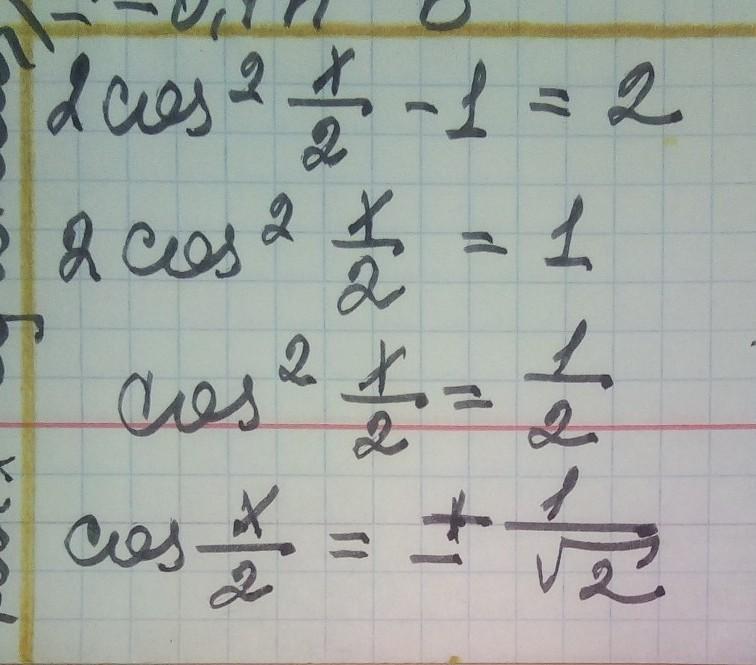 2cos² x/2 - 1 = 2
2cos² x/2 = 1
cos² x/2 = 1/2
cos x/2 = ± 1/√2